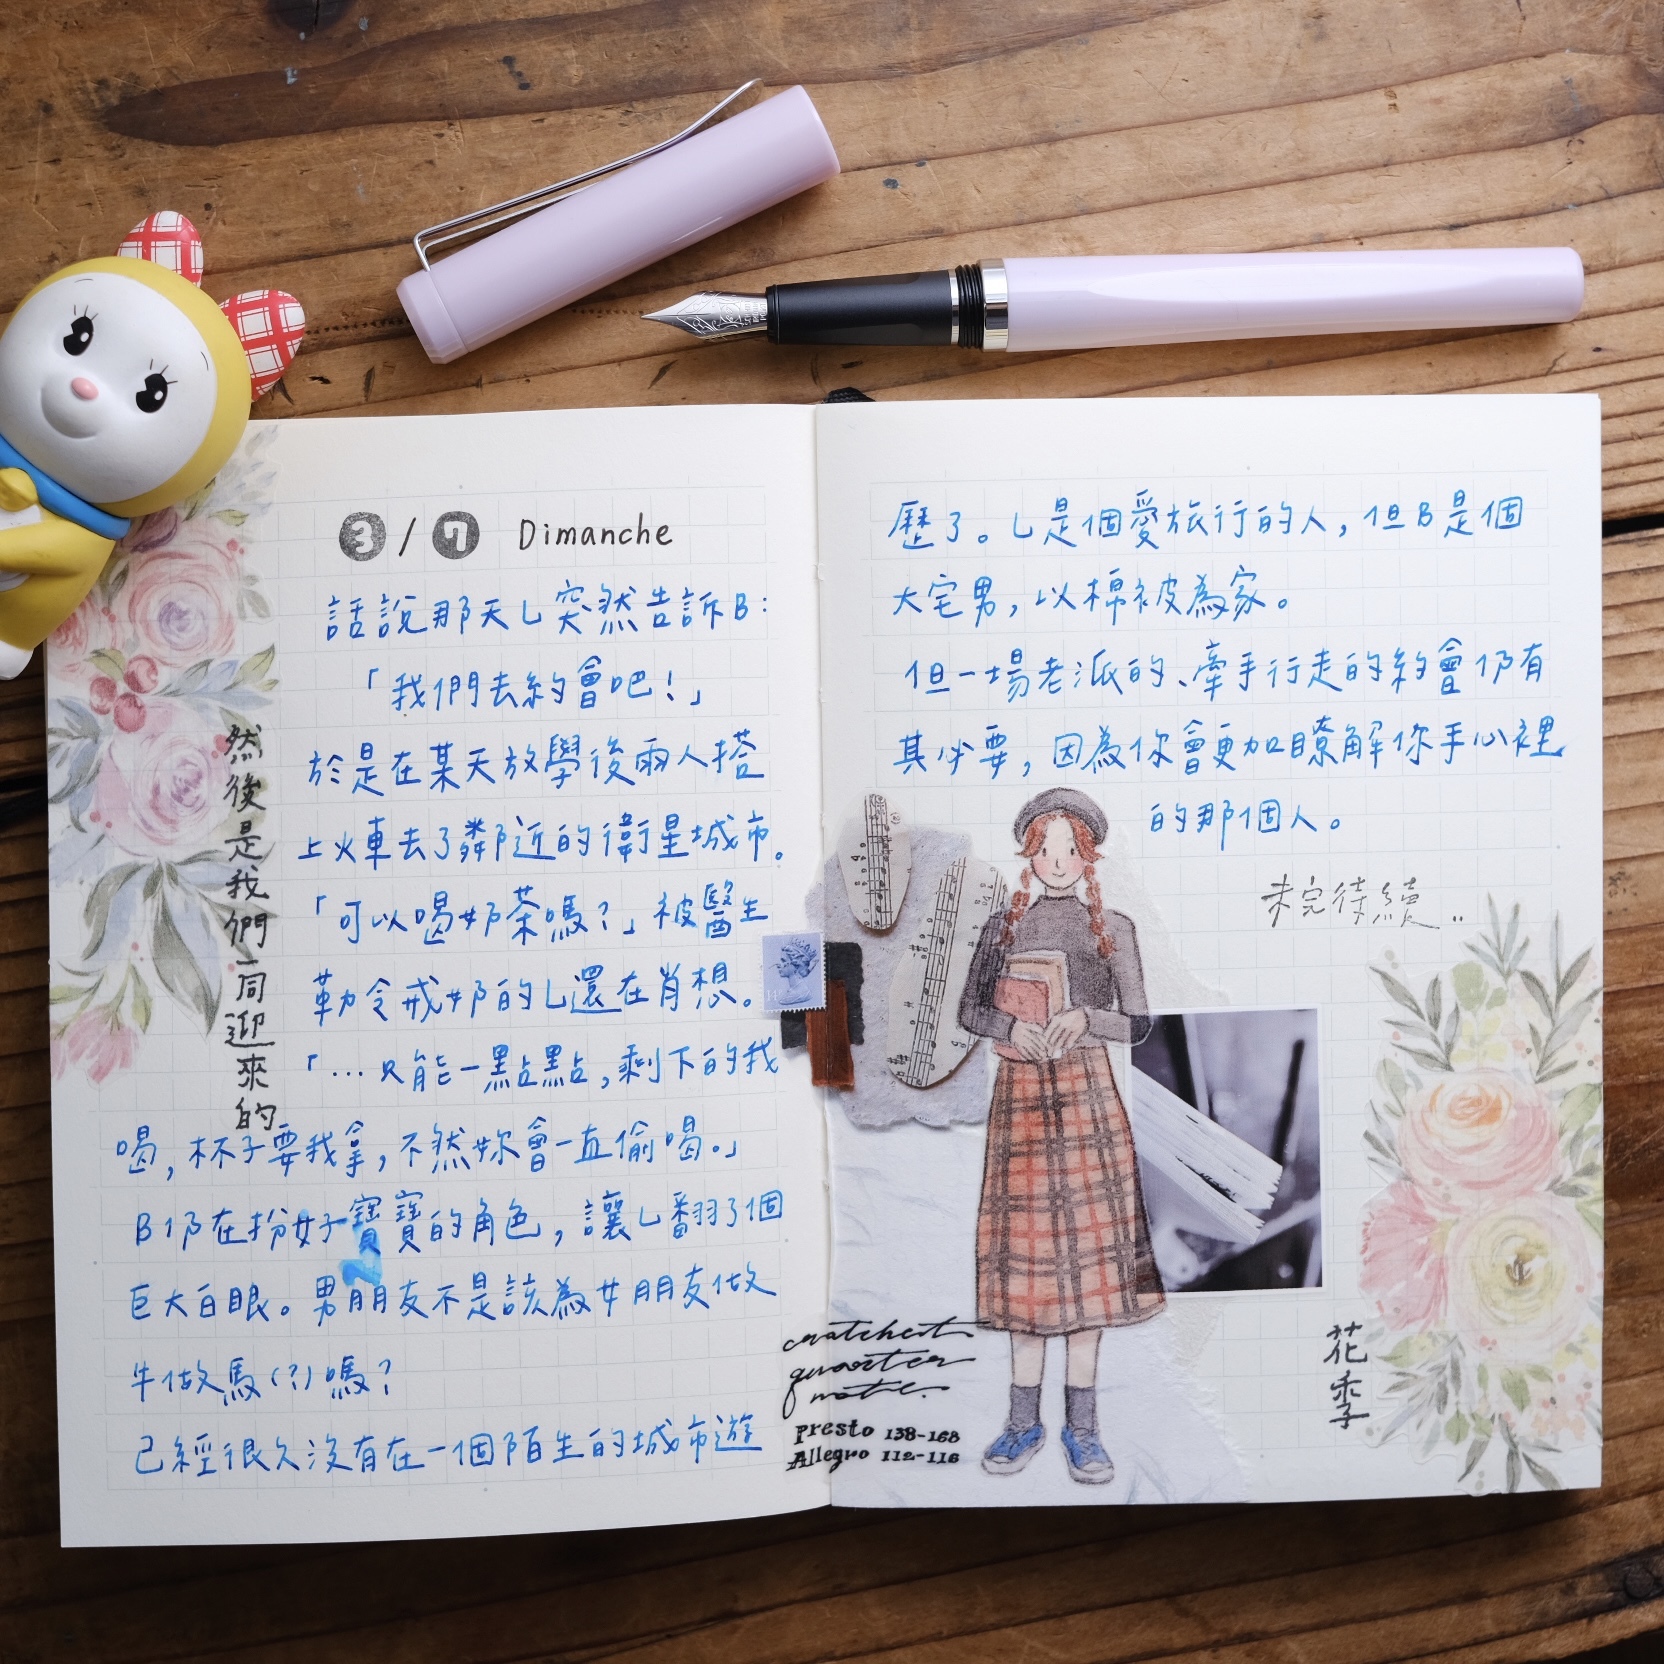 3/7 Dimanche
話說那天L突然告訴B：
「我們去約會吧！」
於是在某天放學後兩人搭
上火車去了鄰近的衛星城市。
「可以喝奶茶嗎？」被醫生
勒令戒奶的L還在肖想。
「…只能一點點，剩下的我
喝，杯子要我拿，不然妳會一直偷喝。」
B仍在扮好寶寶的角色，讓L翻了個
巨大白眼。男朋友不是該為女朋友做
牛做馬(?)嗎？
已經很久沒有在一個陌生的城市遊
然後是我們一同迎來的
歷了。L是個愛旅行的人，但B是個
大宅男，以棉被為家。
但一場老派的、牽手行走的約會仍有
其必要，因為你會更加瞭解你手心裡
的那個人。
未完待續..
quarter
note.
presto 138-168
Allegro 112-116
花季